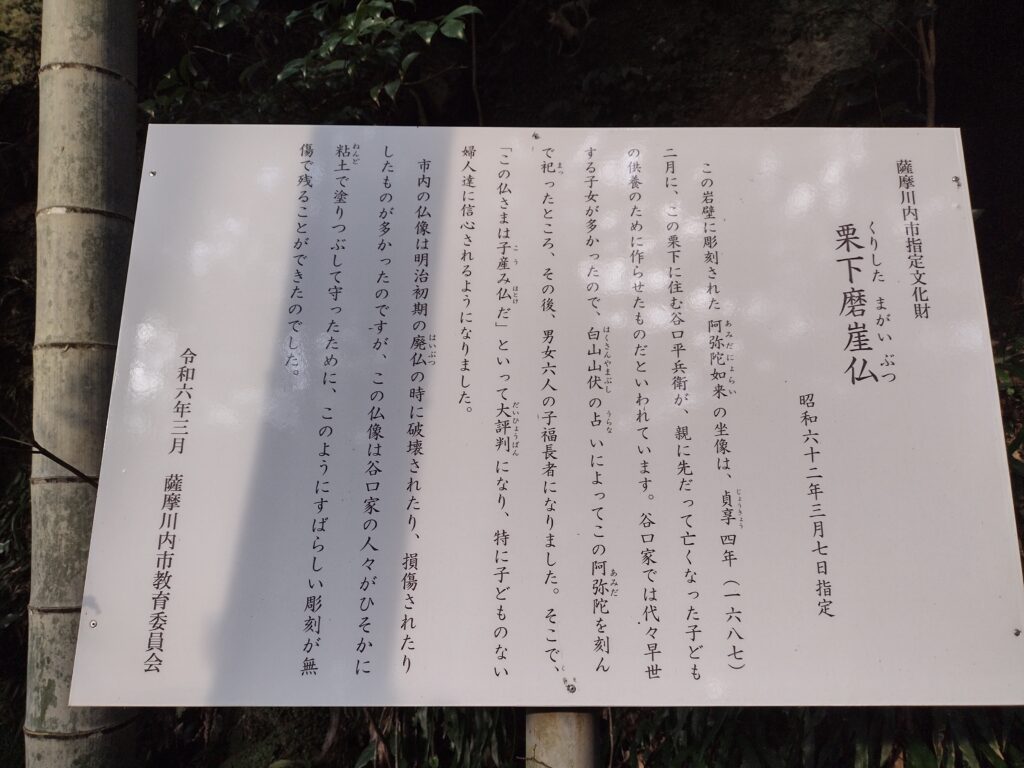 薩摩川内市指定文化財
栗下磨崖仏
くりした まがい ぶつ
昭和六十二年三月七日指定
この岩壁に彫刻された阿弥陀如来の坐像は、貞享四年（一六八七）
あみだにょらい
じょうきょう
二月に、この栗下に住む谷口平兵衛が、親に先だって亡くなった子ども
の供養のために作らせたものだといわれています。谷口家では代々早世
する子女が多かったので、白山山伏の占いによってこの阿弥陀を刻ん
はくさんやまぶし
うらな
あみだ
で祀ったところ、その後、男女六人の子福長者になりました。そこで、
まつ
「この仏さまは子産み仏だ」といって大評判になり、特に子どものない
こう
ほとけ
だいひょうばん
婦人達に信心されるようになりました。
市内の仏像は明治初期の廃仏の時に破壊されたり、損傷されたり
はいぶつ
したものが多かったのですが、この仏像は谷口家の人々がひそかに
粘土で塗りつぶして守ったために、このようにすばらしい彫刻が無
ねんど
傷で残ることができたのでした。
令和六年三月 薩摩川内市教育委員会